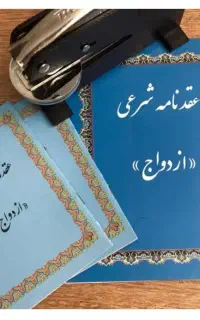 عقدنامه شرعی
«ازدواج»
عقدنا
«ازدوا